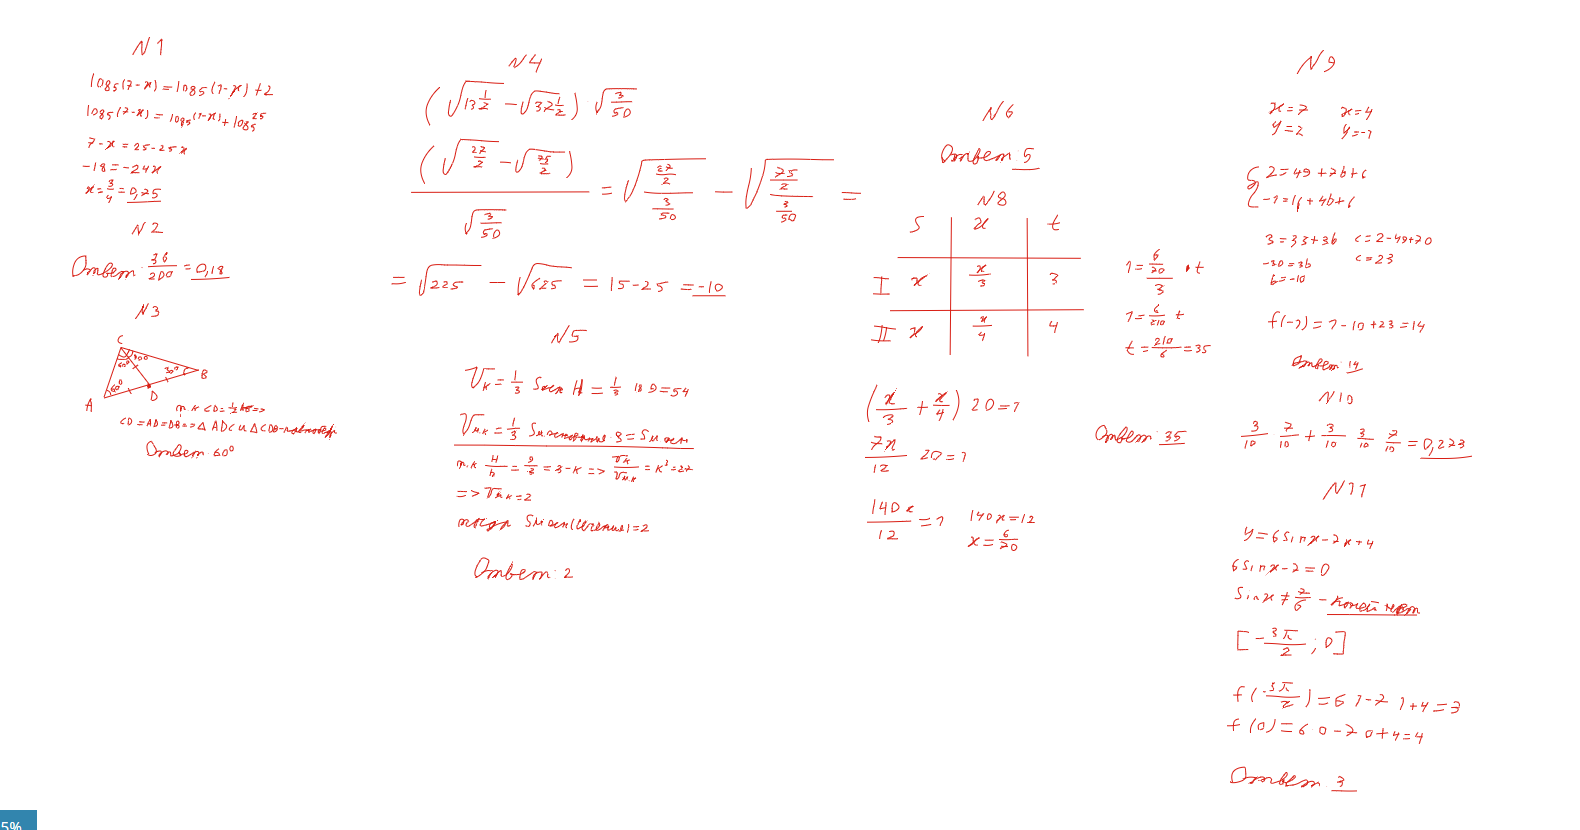 N1
log5(7-x)=log5(1-x)+2
log5(7-x)=log5(1-x)+log5 25
7-x=25-25x
-18=-24x
x=3/4=0,75
N2
Ответ: 36/200=0,18
N3
C
60° 30°
60° 30° B
A D
т.к CD=1/2 AB=>
CD=AD=DB=>△ADC и △CDB-
Ответ 60°
N4
(√13 1/2 - √37 1/2) √3/50
(√27/2 - √75/2) / √3/50 = √(27/2)/(3/50) - √(75/2)/(3/50) =
= √225 - √625 = 15-25 = -10
N5
Vк = 1/3 Sосн H = 1/3 18 9=54
Vмк = 1/3 Sм основание 3 = Sм осн
т.к H/h = 9/3 = 3-к => Vк/Vмк = к³=27
=> Vмк=2
тогда Sм осн(сечения)=2
Ответ: 2
N6
Ответ: 5
N8
S x t
I x x/3 3
II x x/4 4
(x/3 + x/4) 20=1
7x/12 20=1
140x/12 =1 140x=12
x=6/70
1=(6/70)/3 · t
1=6/210 t
t=210/6=35
Ответ: 35
N9
x=7 x=4
y=2 y=-1
{2=49+7b+c
-1=16+4b+c
3=33+3b c=2-49+70
-30=3b c=23
b=-10
f(-1)=1-10+23=14
Ответ 14
N10
3/10 7/10 + 3/10 3/10 7/10 = 0,273
N11
y=6sinx-7x+4
6sinx-7=0
sinx≠7/6 - нет
[-3π/2; 0]
f(-3π/2)=6 1-7 1+4=3
f(0)=6 0-7 0+4=4
Ответ 3
5%